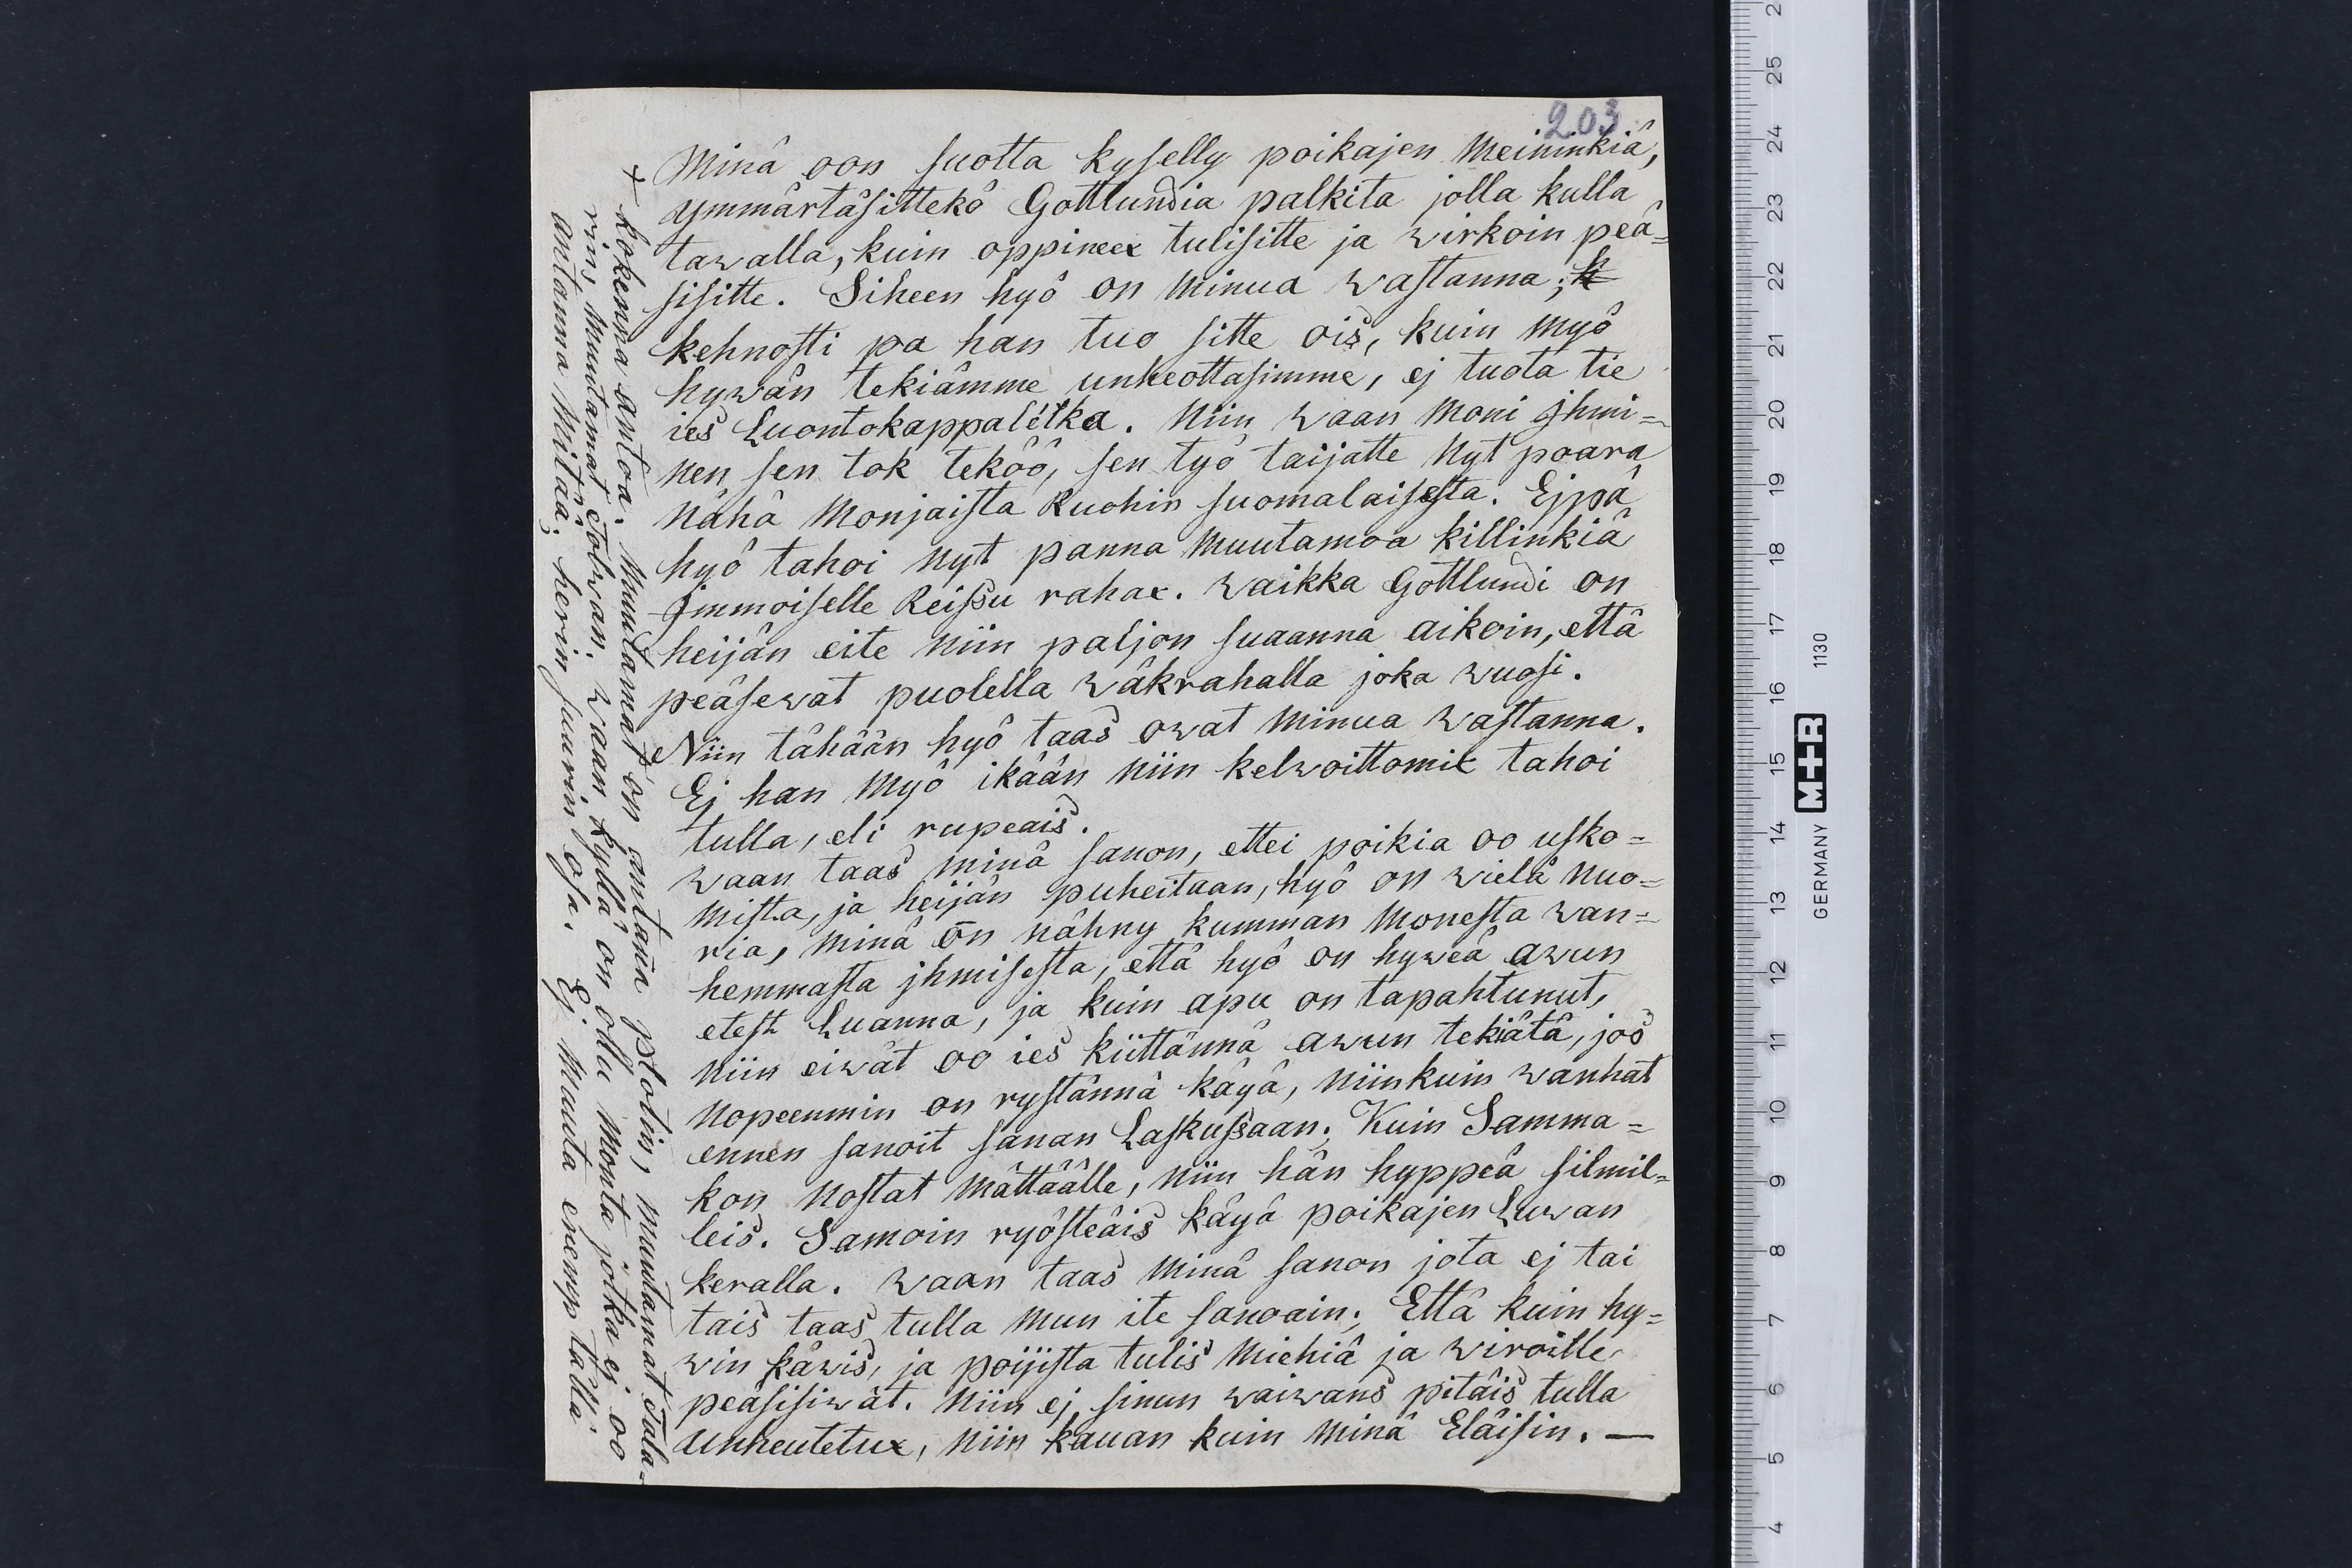 203
Minä oon suotta kyselly poikajen Meininkiä,
ymmärtäsittekö Gottlundia palkita jolla kulla
tawalla, kuin oppineex tulisitte ja wirkoin peä=
sisitte. Siheen hyö on Minua Wastanna; k
kehnosti pa han tuo sitte ois, kuin Myö
hywän tekiämme unheottasimme, ej tuota tie
ies Luontokappalétka. Niin waan Moni Jhmi=
nen sen tok teköö, sen työ taijatte Nyt poara
Nähä Monjaista Ruohin suomalaisesta. Ejpä
hyö tahoi Nyt panna Muutamoa killinkiä
Jmmoiselle Reissu rahax. Waikka Gottlundi on
heijän eite Niin paljon suaanna aikoin, että
peäsewat puolella Wäkrahalla joka Wuosi.
Niin tähään hyö taas owat Minua Wastanna.
Ej han Myö ikään Niin kelwoittomix tahoi
tulla, eli rupeais.
Waan taas Minä sanon, ettei poikia oo usko=
Mista, ja heijän puheitaan, hyö on wielä Nuo=
ria, Minä o̅n Nähny kumman Monesta Wan=
hemmasta jhmisesta, että hyö on hyweä awun
etest Luanna, ja kuin apu on tapahtunut,
Niin eiwät oo ies kiittännä awun tekiätä, jos
Nopeenmin on rystännä käyä, Niinkuin Wanhat
ennen sanoit sanan Laskussaan; Kuin Samma=
kon Nostat Mättäälle, Niin hän hyppeä silmil=
leis. Samoin ryösteäis käyä poikajen Luwan
keralla. Waan taas Minä sanon jota ej tai
tais taas tulla Mun ite sanoain; Että kuin hy=
win käwis, ja poijista tulis Miehiä ja Wiroille
peäsisiwät. Niin ej sinun Waiwans pitäis tulla
Unheutetux, Niin kauan kuin Minä Eläisin. —
+ kokenna antoa. Muutammat on antann plotin, Muutammat Tala=
rin, Muutamat Tolwan. Waan kyllä on ollu Monta jotka ej oo
antanna Mitää; herin suurin osa. Ej Muuta enemp tällä.